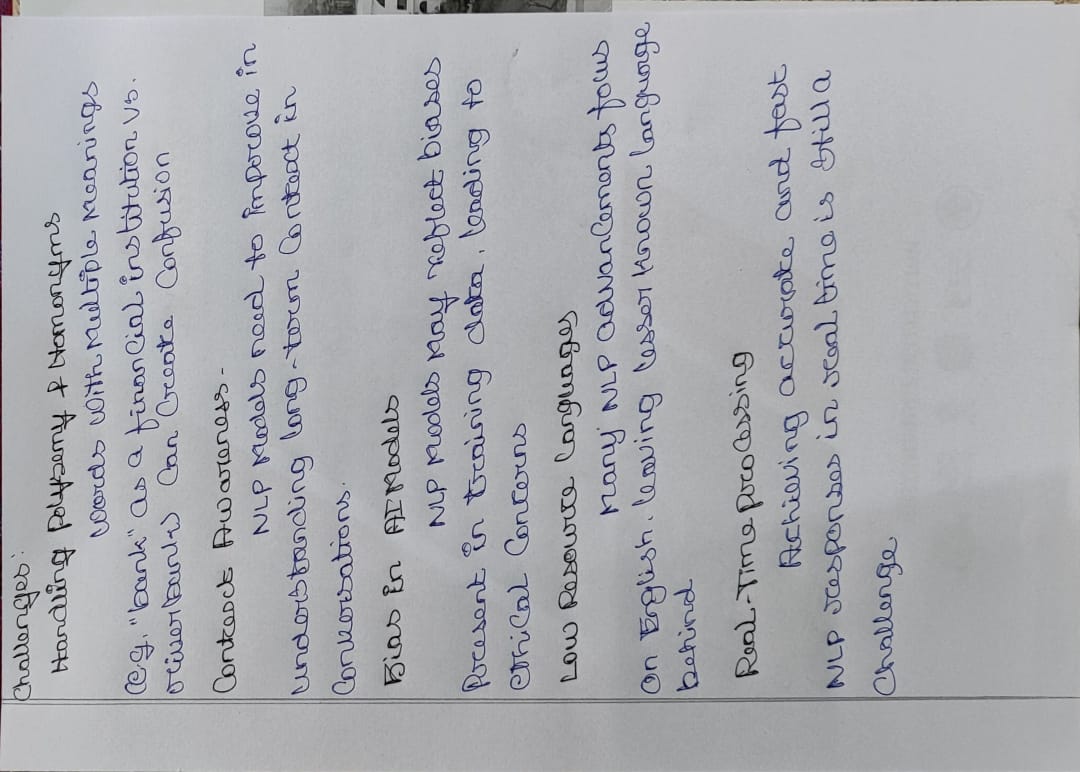 Challenges:
Handling Polysemy & Homonyms
Words With Multiple Meanings
(e.g. "bank" as a financial institution vs.
river bank) Can Create Confusion
Context Awareness -
NLP Models need to improve in
understanding long-term Context in
Conversations.
Bias in AI Models
NLP Models May reflect biases
Present in training data, leading to
ethical Concerns
Low Resource Languages
Many NLP advancements focus
on English, leaving lesser known language
behind
Real-Time processing
Achieving accurate and fast
NLP responses in real time is still a
Challenge